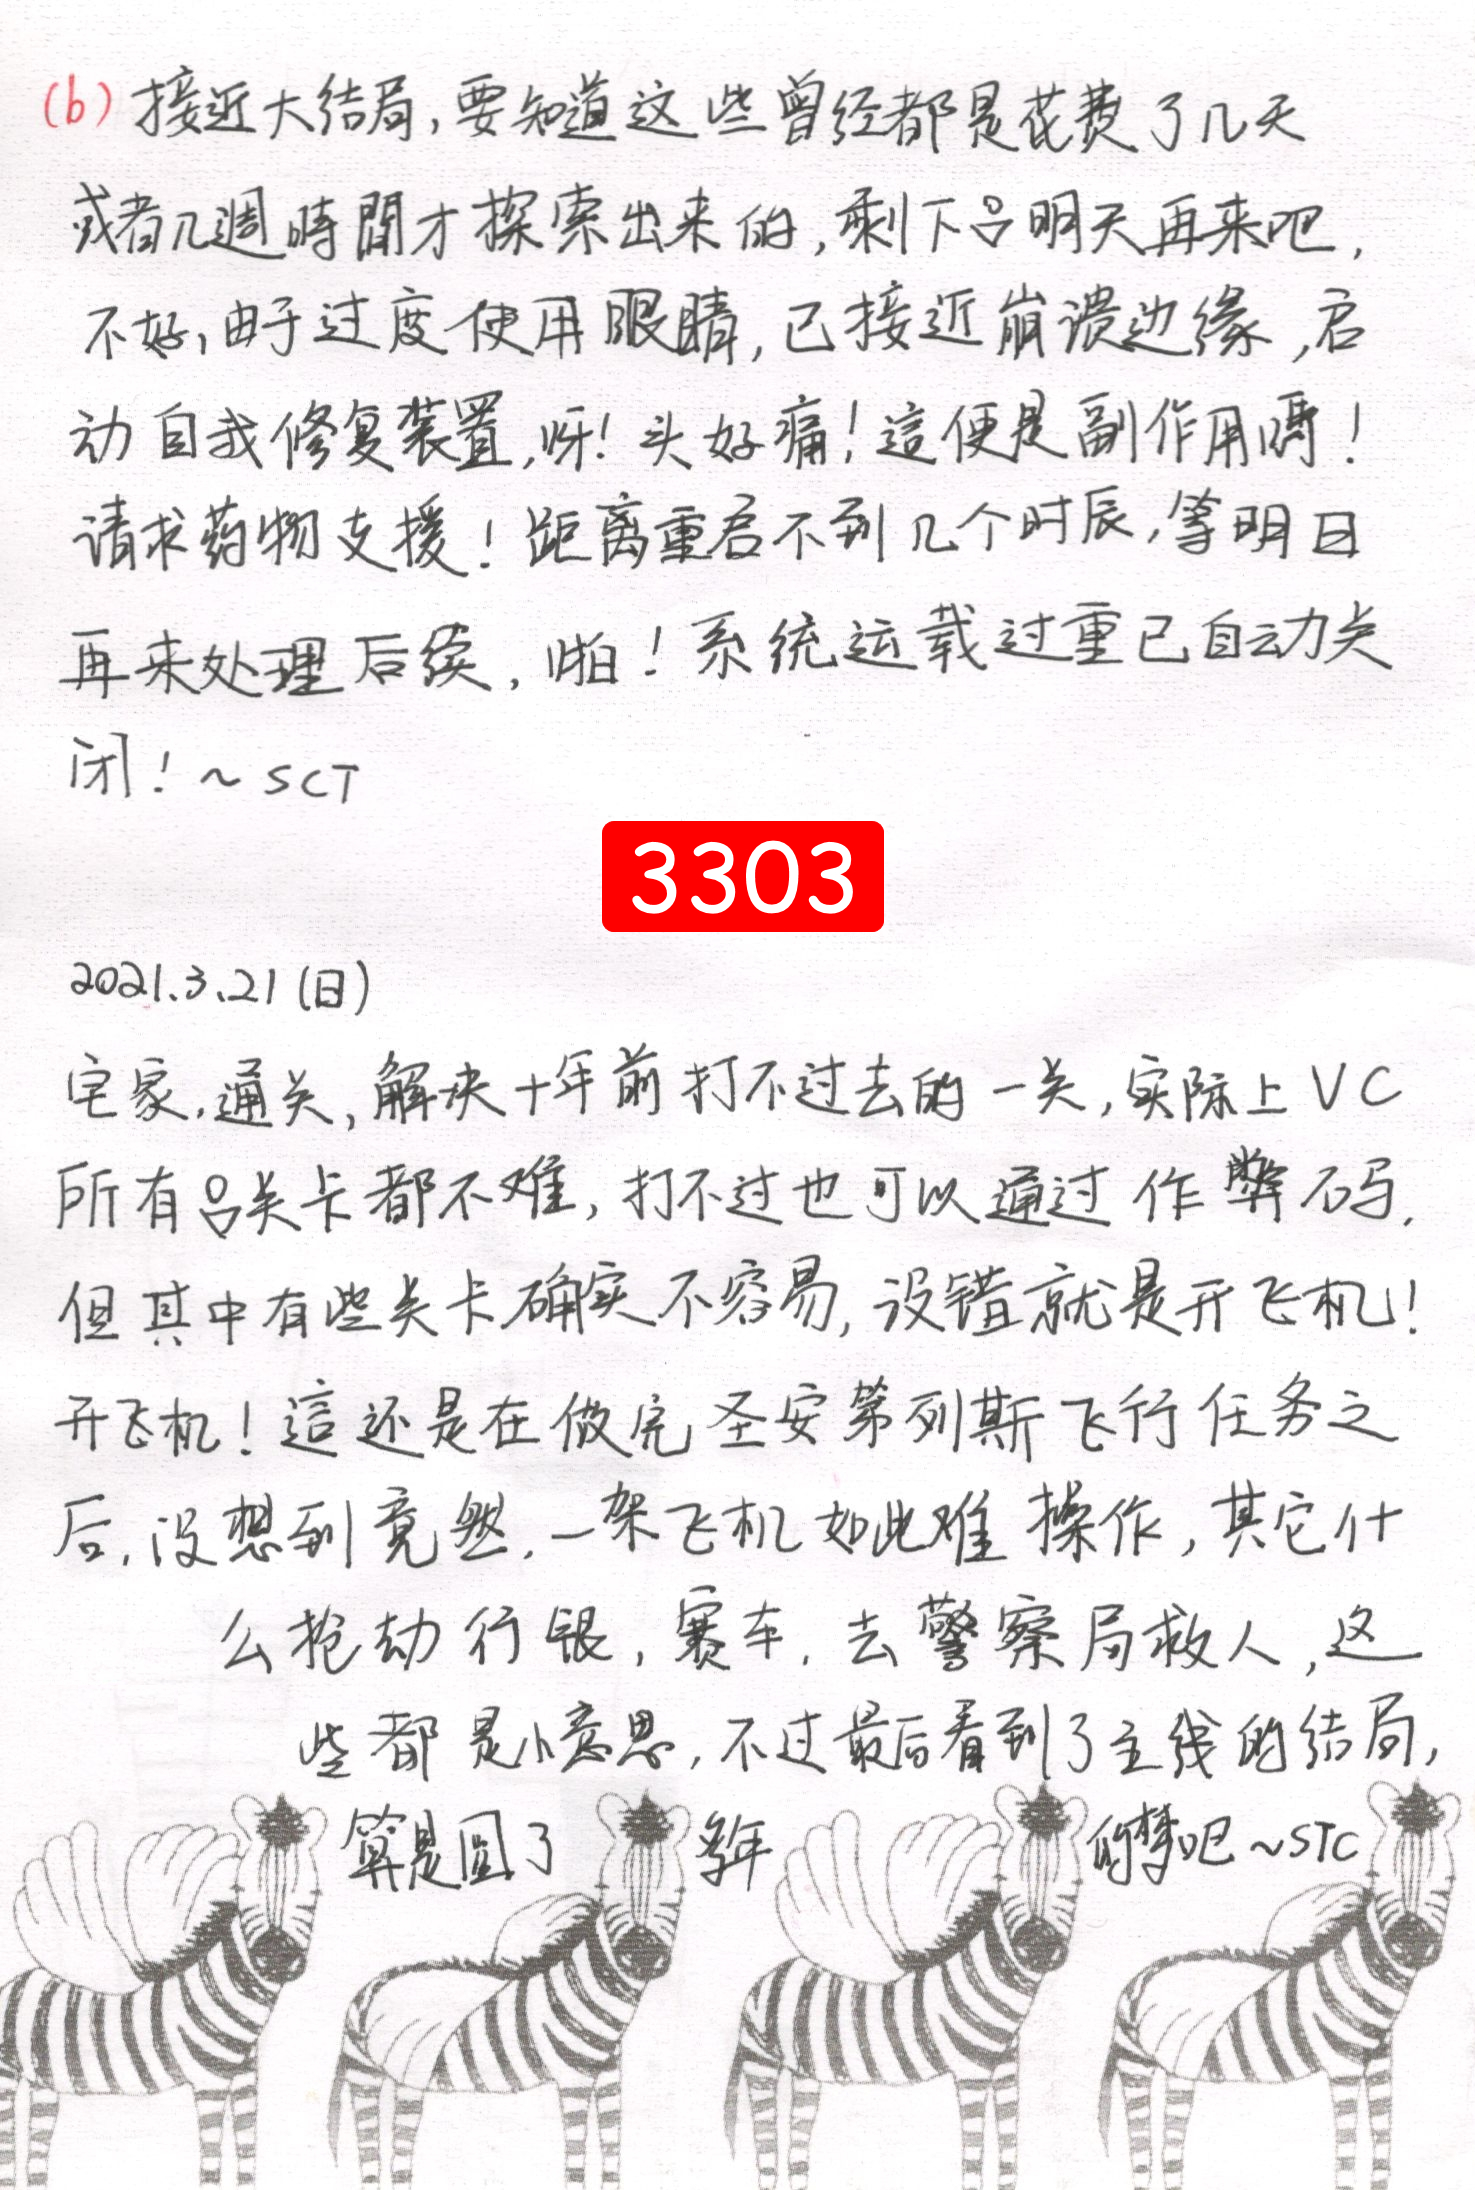 (b) 接近大结局,要知道这些曾经都是花费了几天
或者几週時間才探索出来的,剩下吕明天再来吧,
不好,由于过度使用眼睛,已接近崩溃边缘,启
动自我修复装置,呀!头好痛!這便是副作用嗎!
请求药物支援!距离重启不到几个时辰,等明日
再来处理后续,啪!系统运载过重已自动关
闭!~SCT
3303
2021.3.21(日)
宅家,通关,解决十年前打不过去的一关,实际上VC
所有吕关卡都不难,打不过也可以通过作弊码,
但其中有些关卡确实不容易,没错就是开飞机!
开飞机!這还是在做完圣安第列斯飞行任务之
后,没想到竟然,一架飞机如此难操作,其它什
么抢劫行银,赛车,去警察局救人,这
些都是小意思,不过最后看到了主线的结局,
算是圆了多年的梦吧~STC